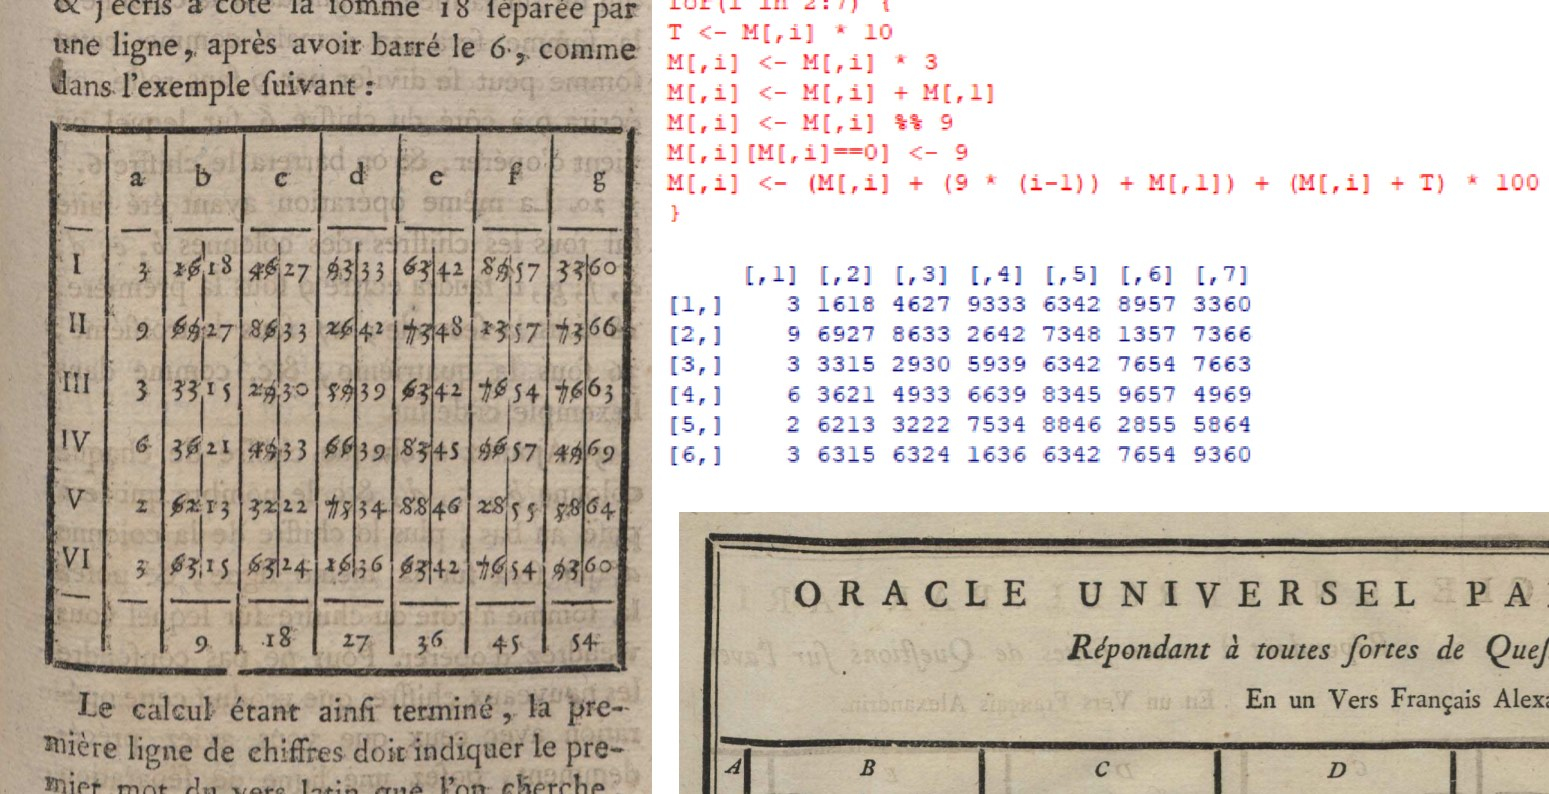 & j'écris à côté la ſomme 18 ſéparée par
une ligne, après avoir barré le 6, comme
dans l'exemple ſuivant :
a b c d e f g
I 3 1618 4627 9333 6342 8957 3360
II 9 6927 8633 2642 7348 1357 7366
III 3 3315 2930 5939 6342 7654 7663
IV 6 3621 4933 6639 8345 9657 4969
V 2 6213 3222 7534 8846 2855 5864
VI 3 6315 6324 1636 6342 7654 9360
9 18 27 36 45 54
Le calcul étant ainſi terminé, la pre-
mière ligne de chiffres doit indiquer le pre-
mier mot du vers latin que l'on cherche
for(i in 2:7) {
T <- M[,i] * 10
M[,i] <- M[,i] * 3
M[,i] <- M[,i] + M[,1]
M[,i] <- M[,i] %% 9
M[,i][M[,i]==0] <- 9
M[,i] <- (M[,i] + (9 * (i-1)) + M[,1]) + (M[,i] + T) * 100
}
[,1] [,2] [,3] [,4] [,5] [,6] [,7]
[1,] 3 1618 4627 9333 6342 8957 3360
[2,] 9 6927 8633 2642 7348 1357 7366
[3,] 3 3315 2930 5939 6342 7654 7663
[4,] 6 3621 4933 6639 8345 9657 4969
[5,] 2 6213 3222 7534 8846 2855 5864
[6,] 3 6315 6324 1636 6342 7654 9360
ORACLE UNIVERSEL PA
Répondant à toutes ſortes de Queſ
En un Vers Français Alexa
A B C D